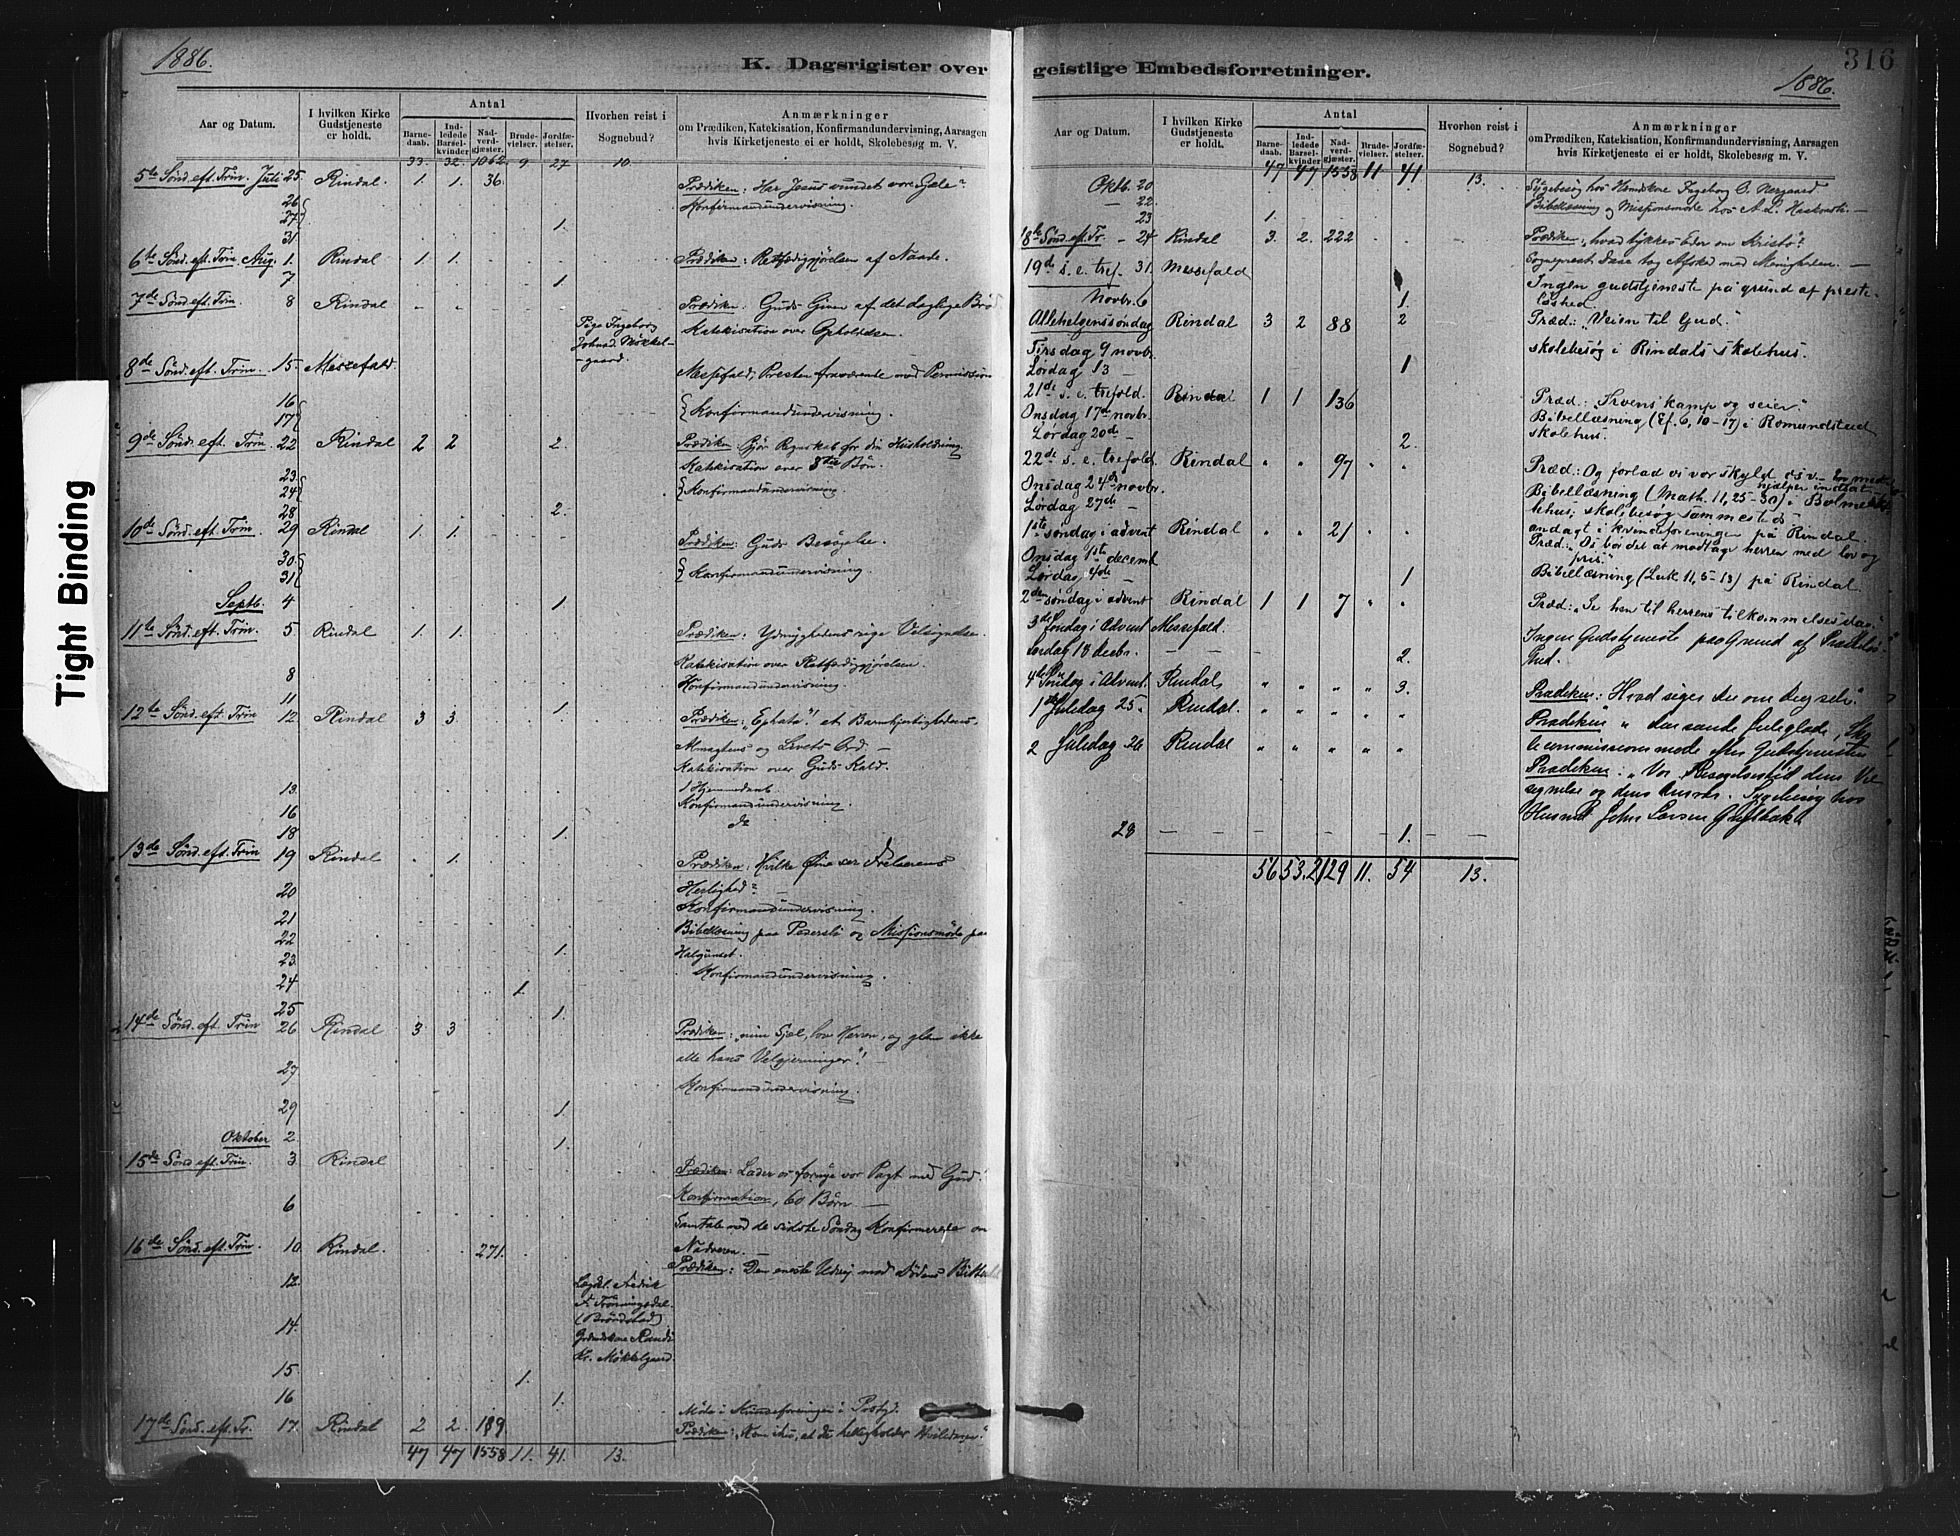 1886.
K. Dagsrigister over
Aar og Datum.
I hvilken Kirke Gudstjeneste er holdt.
Antal
Barnedaab.
Indledede Barselkvinder
Nadverdgjæster.
Brudevielser.
Jordfæstelser.
Hvorhen reist i Sognebud?
Anmærkninger
om Prædiken, Katekisation, Konfirmandundervisning, Aarsagen
hvis Kirketjeneste ei er holdt, Skolebesøg m. V.
33. 32. 1062. 9. 27. 10.
5te Sønd. eft. Trin. Juli 25. Rindal. 1 1. 36. Prædiken: Har Jesus vundet vor Sjæle?
26 Konfirmandundervisning.
27
31 1.
6te Sønd. eft. Trin. Aug. 1. Rindal 1 1. Prædiken: Retfærdiggjørelsen af Naade.
7 1
7de Sønd. eft. Trin. 8 Rindal Prædiken: Guds Given af det daglige Brød
Pige Ingeborg Katekisation over
Johnsd. Møkkelgaard.
8de Sønd. eft. Trin. 15. Messefald. Messefald, Presten fraværende med Permission
16
17 Konfirmandundervisning.
9de Sønd. eft. Trin. 22 Rindal 2 2 2. Prædiken: Gjør Regnskab for din Husholdning
Katekisation over 3die Bøn.
23.
24 Konfirmandundervisning.
28 2.
10de Sønd. eft. Trin. 29 Rindal 1. 1. Prædiken: Guds Besøgelse.
30
31 Konfirmandundervisning.
Septb. 4 1
11te Sønd. eft. Trin. 5 Rindal 1 1. Prædiken: Ydmyghedens rige Velsignelse.
Katekisation over Retfærdiggjørelsen.
8 Konfirmandundervisning
11 1.
12te Sønd. eft. Trin 12. Rindal 3 3. Prædiken: „Ephata"! et Barmhjertighedens
Almagtens og Livets Ord. —
Katekisation over Guds Kald.
13. I Hjemmedaab
16 Konfirmandundervisning.
18 1. do
13de Sønd. eft. Trin 19 Rindal 1. Prædiken: Hvilke Øine ser Frelserens
Herlighed?
20 Konfirmandundervisning.
21 Bibellæsning paa Pedersli og Missionsmøde paa
22 Halgunset.
23. 1.
24 1. Konfirmandundervisning.
25 1.
14de Sønd. eft. Trin 26 Rindal 3 3 Prædiken: „min Sjæl, lov Herren, og glem ikke
alle hans Velgjerninger"! —
27 Konfirmandundervisning.
29 1.
Oktober 2. 1.
15de Sønd eft. Trin. 3 Rindal Prædiken: Lader os fornye vor Pagt med Gud.
Konfirmation, 60 Børn —
6 Samtale med de sidste Søndag Konfirmerede om
Nadveren. —
16de Sønd. eft. Trin. 10. Rindal. 271. Prædiken: Den eneste Udvej mod Dødens
12. Lægdl. Fredrik
F. Trønningsdal.
(Brøndstad)
14. Randi
Kr. Møkkelgaard.
15. 1.
16 1. Møde i Kvindeforeningen i
17de Sønd. eft. Tr. 17. Rindal 2 2. 189. Prædiken: „Kom ihu, at du helligholder Hviledagen".
47 47 1558 11. 41. 13.
geistlige Embedsforretninger.
316
1886.
Aar og Datum.
I hvilken Kirke Gudstjeneste er holdt.
Antal
Barnedaab.
Indledede Barselkvinder
Nadverdgjæster.
Brudevielser.
Jordfæstelser.
Hvorhen reist i Sognebud?
Anmærkninger
om Prædiken, Katekisation, Konfirmandundervisning, Aarsagen
hvis Kirketjeneste ei er holdt, Skolebesøg m. V.
47 47 1558 11 41 13.
Oktb. 20 Sygebesøg hos Ingeborg O. Nergaard
— 22 Bibellæsning og Missionsmøde hos A. L.
23 1.
18de Sønd. eft. Tr. — 24 Rindal 3. 2. 222 Prædiken: „hvad tykkes Eder om Kristo"?
19de s. e. tref. 31. Messefald Sogneprest Daae tog Afsked med Menigheden. —
Novbr. 6 1. Ingen gudstjeneste på grund af presteløshed.
Allehelgenssøndag Rindal 3 2 88 2 Præd: „Veien til Gud."
Tirsdag 9 novbr. skolebesøg i Rindals skolehus.
Lørdag 13 — 1
21de s. e. trefold. Rindal 1 1 136 Præd: „Troens kamp og seier."
Onsdag 17de novbr. Bibellæsning (Ef. 6, 10-17) i Romundstad
Lørdag 20de — 2. skolehus.
22de s. e. trefold. Rindal 97 Præd: Og forlad os vor skyld
Onsdag 24de novbr. Bibellæsning (Math. 11, 25-30) i
Lørdag 27de — skolebesøg sammesteds —
1ste søndag i advent Rindal 21 andagt i kvindeforeningen på Rindal.
Onsdag 1ste decemb Præd: „Os bør det at modtage herren med lov og pris."
Lørdag 4de — 1 Bibellæsning (Luk 11, 5-13) på Rindal
2den søndag i advent Rindal 1 1 7 Præd: „Se hen til herrens tilkommelses dag"
3de søndag i Advent Messefald. Ingen Gudstjeneste paa Grund af
lørdag 18 decbr. 2.
4de Søndag i Advent. Rindal 3. Prædiken: Hvad siger du om dig selv"
1ste Juledag 25. Rindal. Prædiken „den sande Juleglæde,
2 Juledag 26 Rindal møde efter Gudstjenesten
Prædiken: „Vor Besøgelsestid dens
og dens Sygebesøg hos
28 1. Husmd John Larsen
56 53. 2129 11. 54 13.
Tight Binding